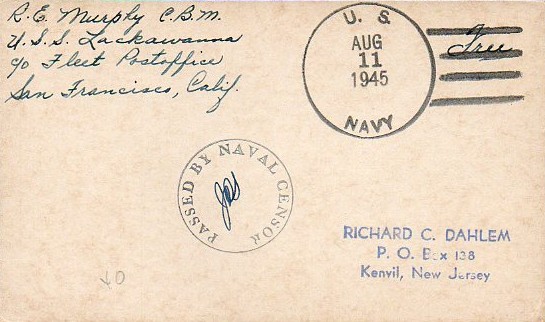 R. E. Murphy C. B. M.
U. S. S. Lackawanna
c/o Fleet Postoffice
San Francisco, Calif.
U. S.
AUG
11
1945
NAVY
Free
PASSED BY NAVAL CENSOR
RICHARD C. DAHLEM
P. O. Box 138
Kenvil, New Jersey